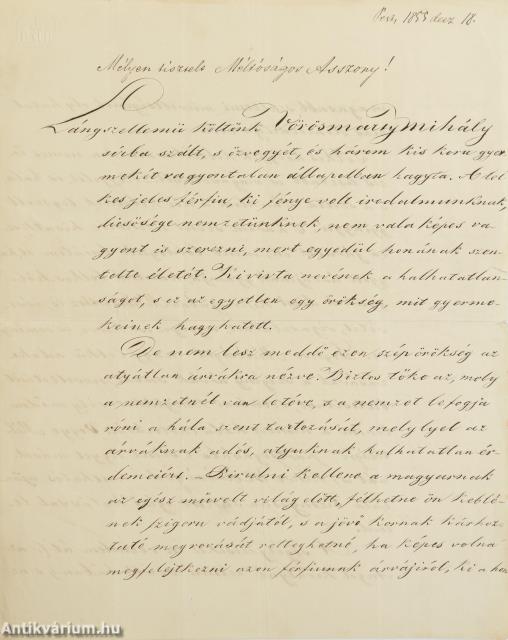 Pest, 1855 decz 18.
Mélyen tisztelt Méltóságos Asszony!
Lángszellemü költönk Vörösmarty Mihály
sirba szált, s özvegyét, és három kis koru gyer
mekét vagyontalan állapotban hagyta. A lel
kes jeles férfiu, ki fénye volt irodalmunknak,
dicsősége nemzetünknek, nem vala képes va
gyont is szerezni, mert egyedül honának szen
telte életét. Kivivta nevének a halhatatlan
ságot, s ez az egyetlen egy örökség, mit gyerme
keinek hagyhatott.
De nem lesz meddő ezen szép örökség az
atyátlan árvákra nézve. Biztos tőke az, mely
a nemzetnél van letéve, s a nemzet lefogja
róni a hála szent tartozását, melylyel az
árváknak adós, atyuknak halhatatlan ér
demeiért. – Pirulni kellene a magyarnak
az egész müvelt világ előtt, félhetne ön keblé
nek szigoru vádjától, s a jövő kornak kárhoz
tató megrovását retteghetné, ha képes volna
megfelejtkezni azon férfiunak árvájiról, ki a hon
Antikvárium.hu